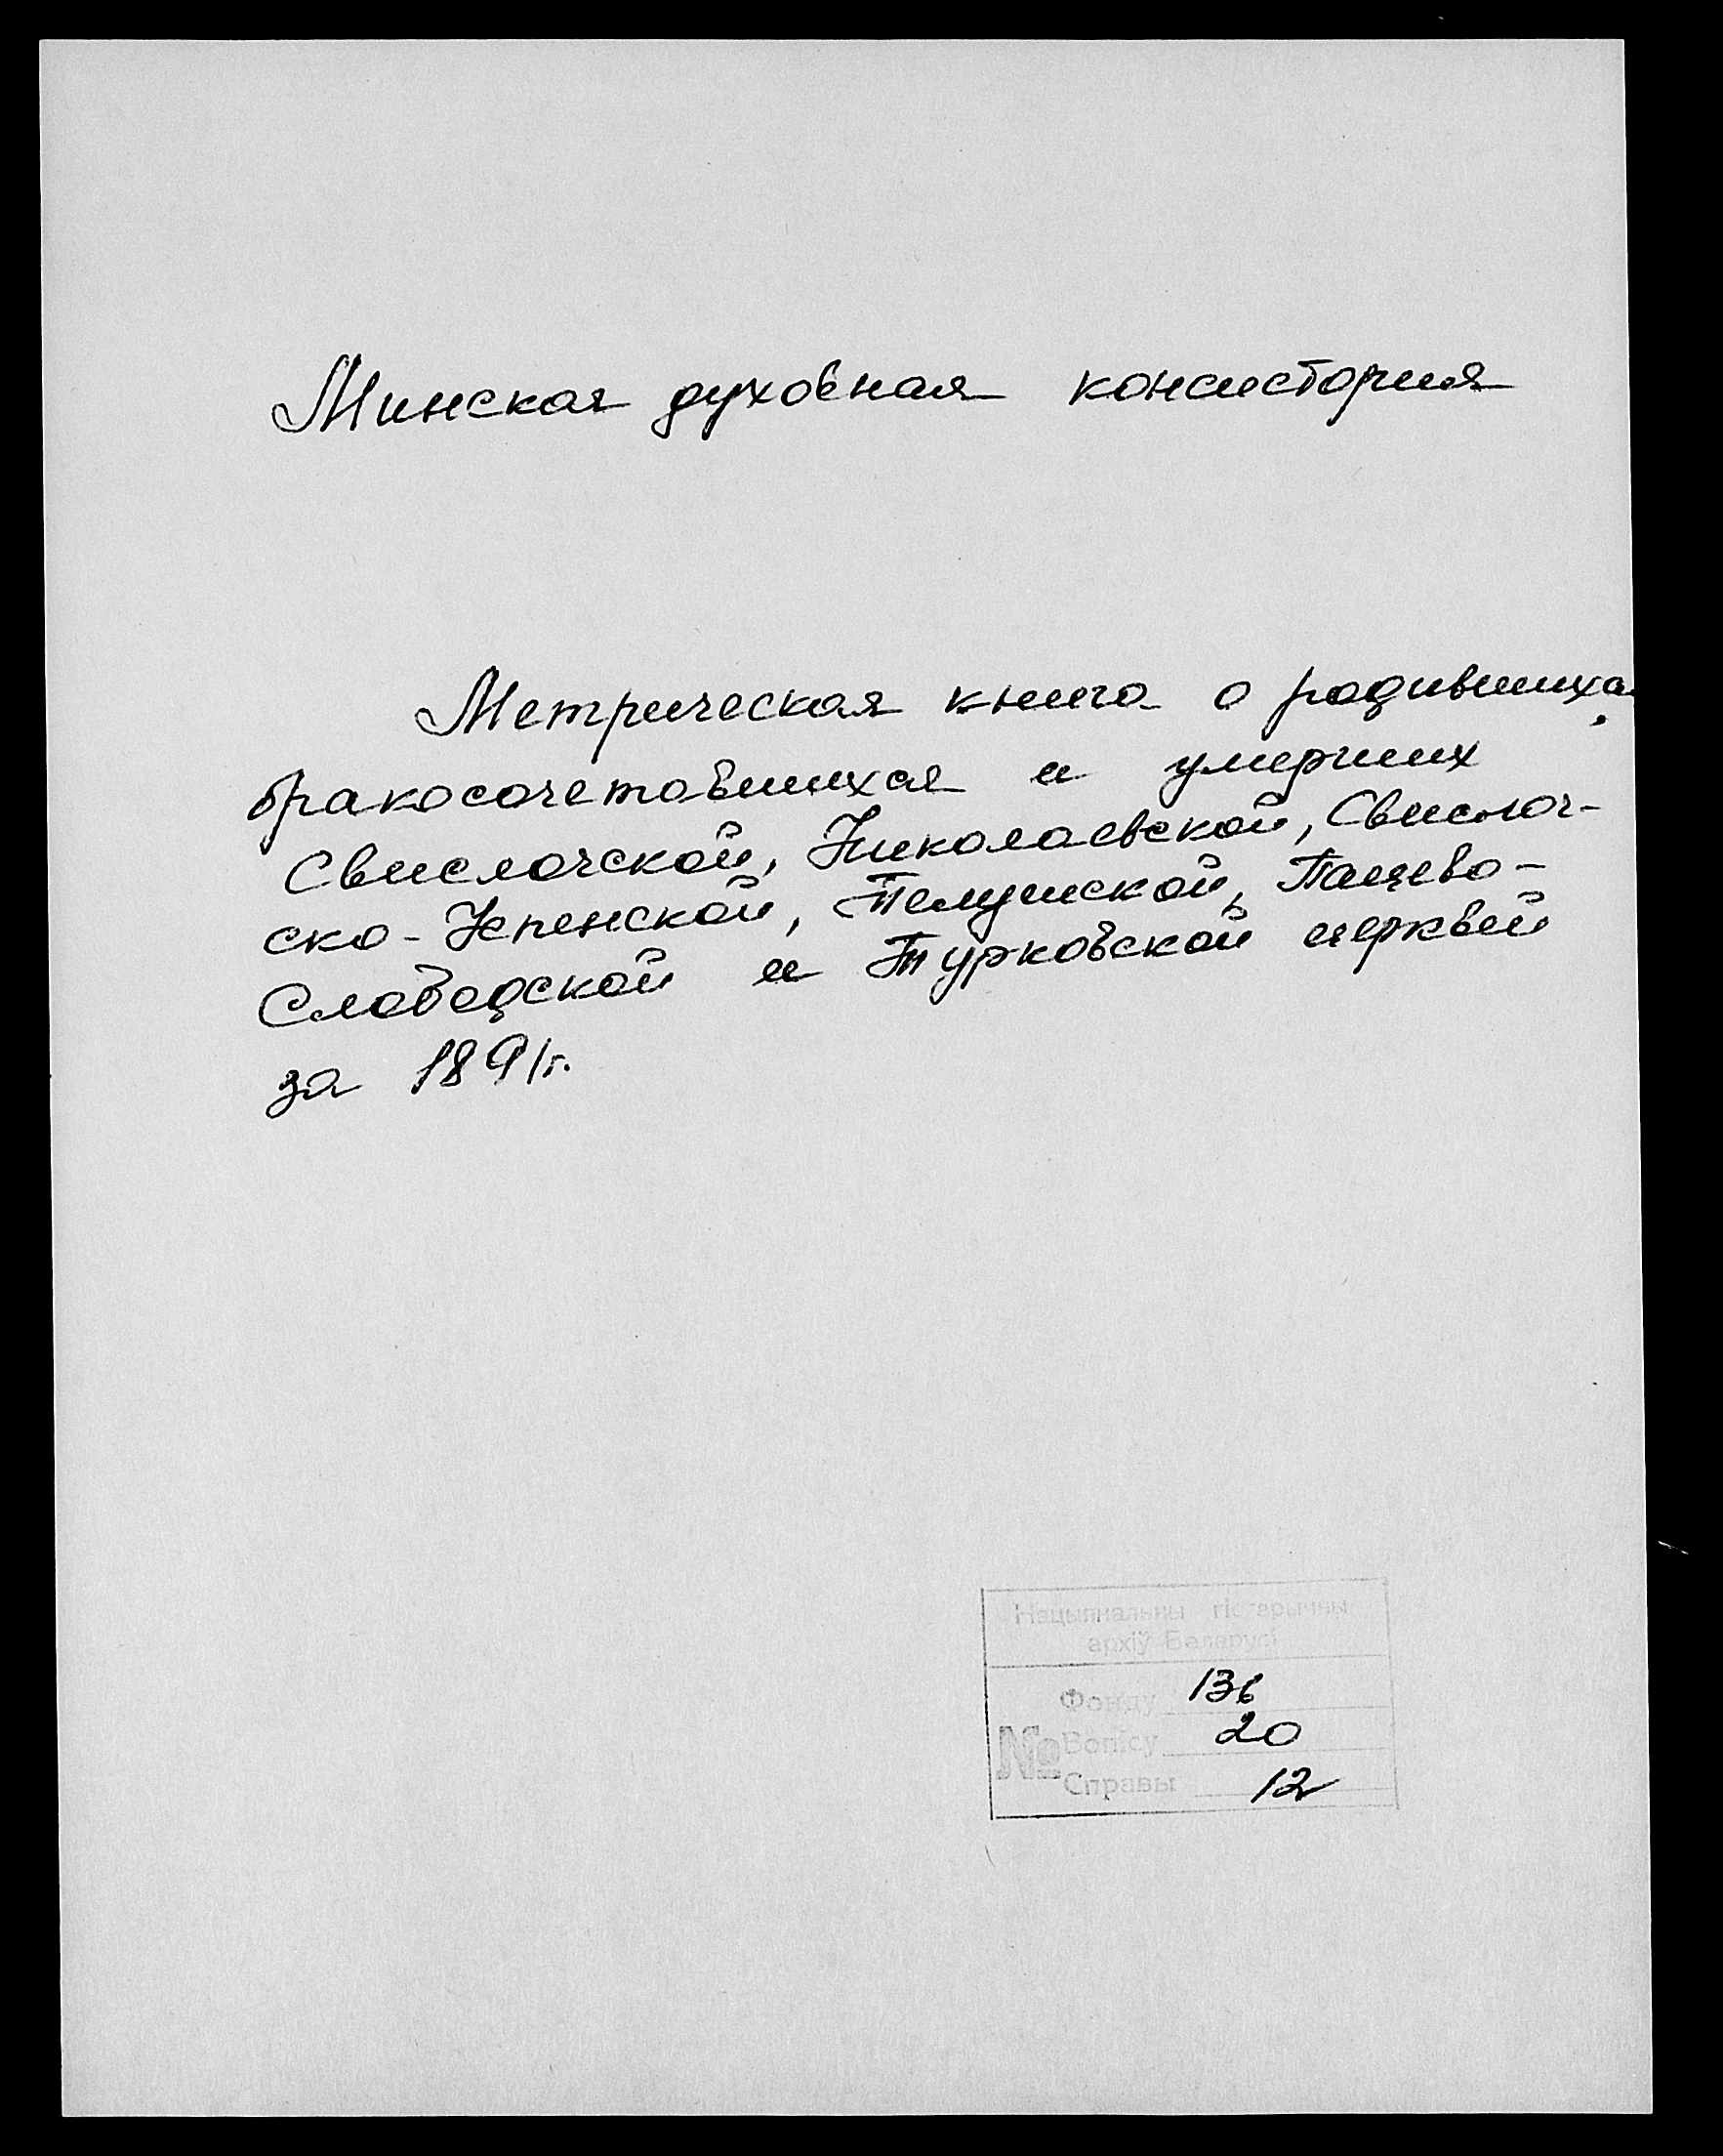 Минская духовная консистория
Метрическая книга о родившихся,
бракосочетовшихся и умерших
Свислочской, Николаевской, Свислоч-
ско-Успенской, Телушской, Пацево-
Слободской и Турковской церквей
за 1891г.
Нацыянальны гістарычны
архіў Беларусі
Фонду 136
№ Вопісу 20
Справы 12